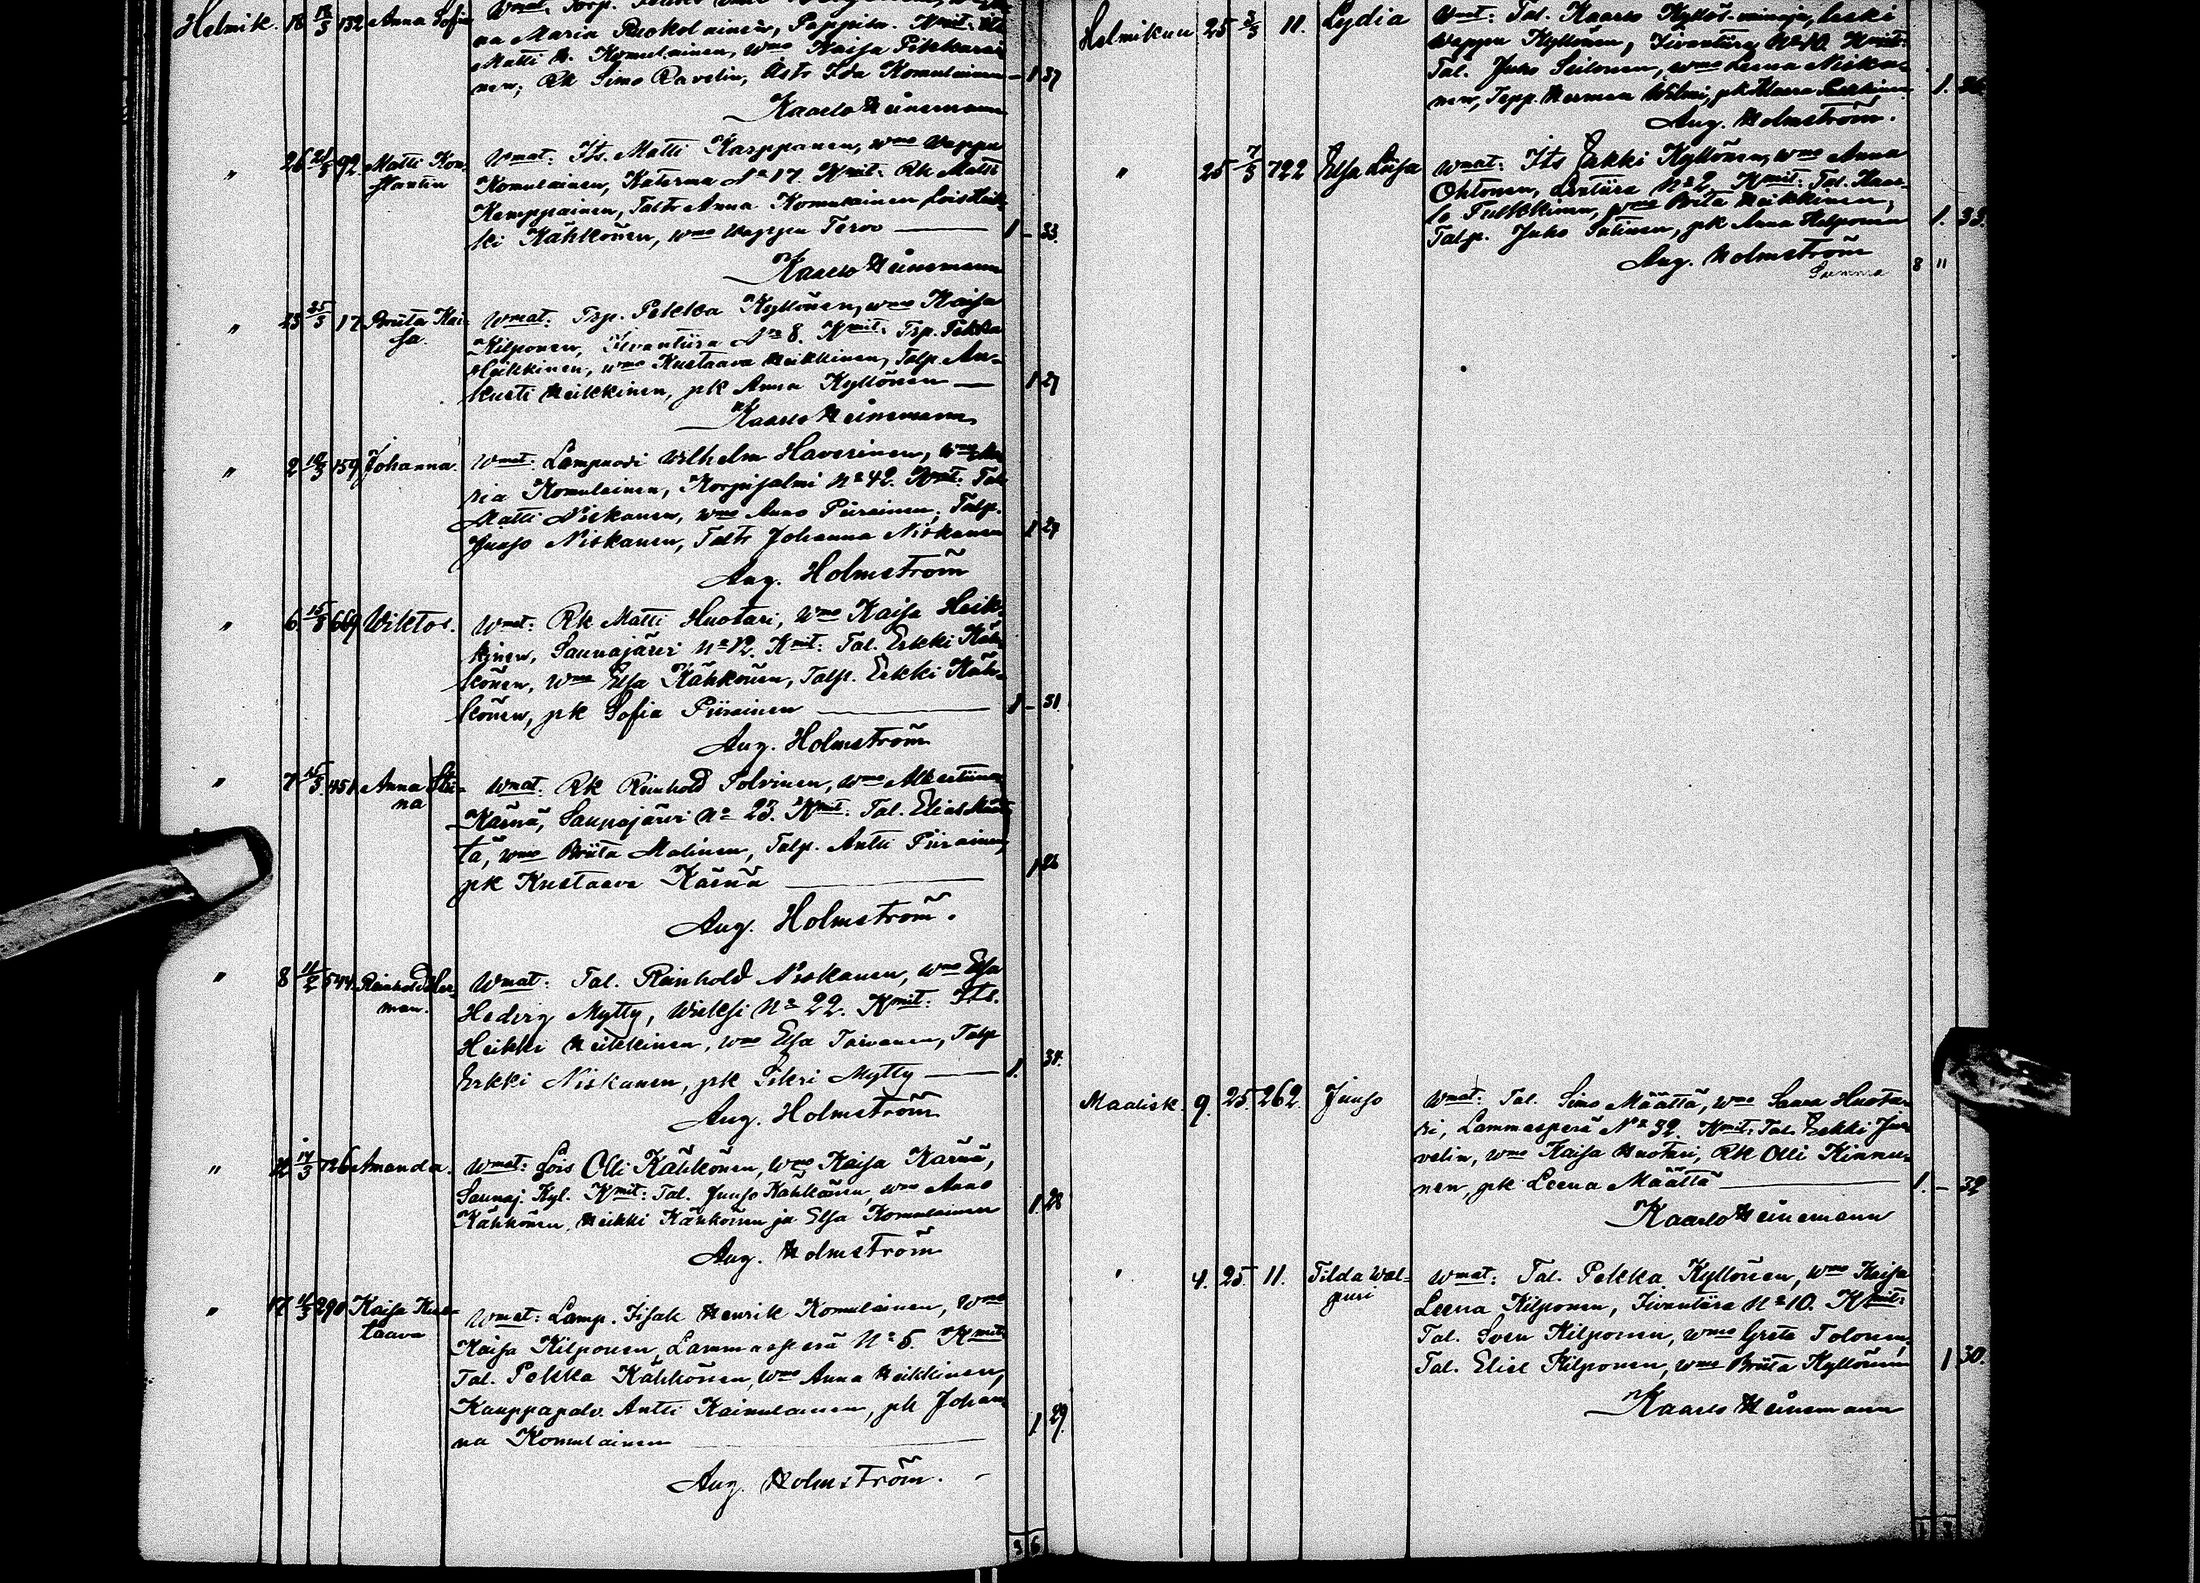 Helmik. 18 18/3 132 Anna Sofia
na Maria Ruokolainen, Poppius. Kmit:
Matti H. Komulainen, wmo Kaisa Pikkarai-
nen; Rk Simo Ravelin, Astr Ida Komulainen — 1 37
Kaarlo Heinemann
" 26 21/3 92 Matti Kon- Wmat: Its. Matti Karppanen, wmo Wappu
stantin Komulainen, Katerma No 17 Kmit: Rk Matti
Kemppainen, Taltr Anna Komulainen Lois Heik-
ki Kähkönen, wmo Wappu Tervo — 1 – 33.
Kaarlo Heinemann
" 23 25/3 17 Briita Kai- Wmat: Tsp. Pekka Kyllönen, wmo Kaisa
sa. Kilponen, Iivantiira No 8. Kmit: Tsp. Pekka
Heikkinen, wmo Kustaava Heikkinen, Talp. Au-
kusti Heikkinen, pk Anna Kyllönen — 1 27
Kaarlo Heinemann
" 2 10/3 159 Johanna. Wmat: Lampuodi Wilhelm Haverinen, Wmo Ma-
ria Komulainen, Korpisalmi No 42. Kmit: Tal.
Matti Niskanen, wmo Anna Piirainen, Talp.
Juuso Niskanen, Taltr Johanna Niskanen 1 27
Aug. Holmström
" 6. 15/3 669 Wiktor. Wmat: Rk Matti Huotari, Wmo Kaisa Heik-
kinen, Saunajärvi No 12. Kmit: Tal. Erkki Käh-
könen, Wmo Elsa Kähkönen, Talp. Erkki Käh-
könen, pk Sofia Piirainen — 1 – 31.
Aug. Holmström
" 7 15/3 451 Anna Sti- Wmat: Rk Reinhold Polvinen, Wmo Albertiina
na Kärnä, Saunajärvi No 23. Kmit: Tal. Elias Määt-
tä, wmo Briita Malinen, Talp. Antti Piirainen,
pk Kustaava Kärnä — 1 23
Aug. Holmström.
" 8 11/2 544. Reinhold Her- Wmat: Tal. Reinhold Niskanen, wmo Elsa
man. Hedvig Mytty, Wieksi No 22. Kmit: Its.
Heikki Heikkinen, wmo Elsa Taivanen, Talp
Erkki Niskanen, pk Pekri Mytty — 1. 34.
Aug. Holmström
" 22 17/3 726 Amanda. Wmat: Lois Olli Kähkönen, Wmo Kaisa Kärnä,
Saunaj. Kyl. Kmit: Tal. Juuso Kähkönen, wmo Anna
Kähkönen, Heikki Kähkönen ja Elsa Komulainen 1. 28
Aug. Holmström
" 17 11/3 290 Kaisa Kus- Wmat: Lamp. Iisak Henrik Komulainen, Wmo
taava Kaisa Kilponen, Lammasperä No 5. Kmit:
Tal. Pekka Kähkönen, Wmo Anna Heikkinen,
Kauppapalv. Antti Kainulainen, pk Johan-
na Komulainen — 1. 29.
Aug. Holmström. –
3 6
Helmikuu 25 3/3 11. Lydia Wmat: Tal. Kaarlo Kyllös-vainaja, leski
Wappu Kyllönen, Iivantiira No 10. Kmit:
Tal. Juho Seilonen, wmo Leena Niska-
nen, Sepp. Herman Wilmi, pk Klaara Pulkkinen 1.
Aug. Holmström.
" 25 7/3 722 Elsa Liisa Wmat: Its Jakki Kyllönen, wmo Anna
Ohtonen, Lentiira No 2. Kmit: Tal. Kaar-
lo Tulkkinen, wmo Brita Heikkinen,
Talp. Juho Satinen, pk Anna Halponen 1. 33.
Aug. Holmström
Summa 8 "
Maalisk. 9. 25. 262. Juuso Wmat: Tal. Simo Määttä, wmo Saara Huota-
ri, Lammasperä No 32. Kmit: Tal. Erkki Jur-
velin, wmo Kaisa Huotari, Rk Olli Kinnu-
nen, pk Leena Määttä — 1. – 32
Kaarlo Heinemann
" 4. 25. 11. Tilda Wal- Wmat: Tal. Pekka Kyllönen, Wmo Kaisa
puri Leena Kilponen, Iivantiira No 10. Kmit:
Tal. Sven Kilponen, wmo Greta Tolonen,
Tal. Elias Kilponen, wmo Briita Kyllönen 1 30.
Kaarlo Heinemann